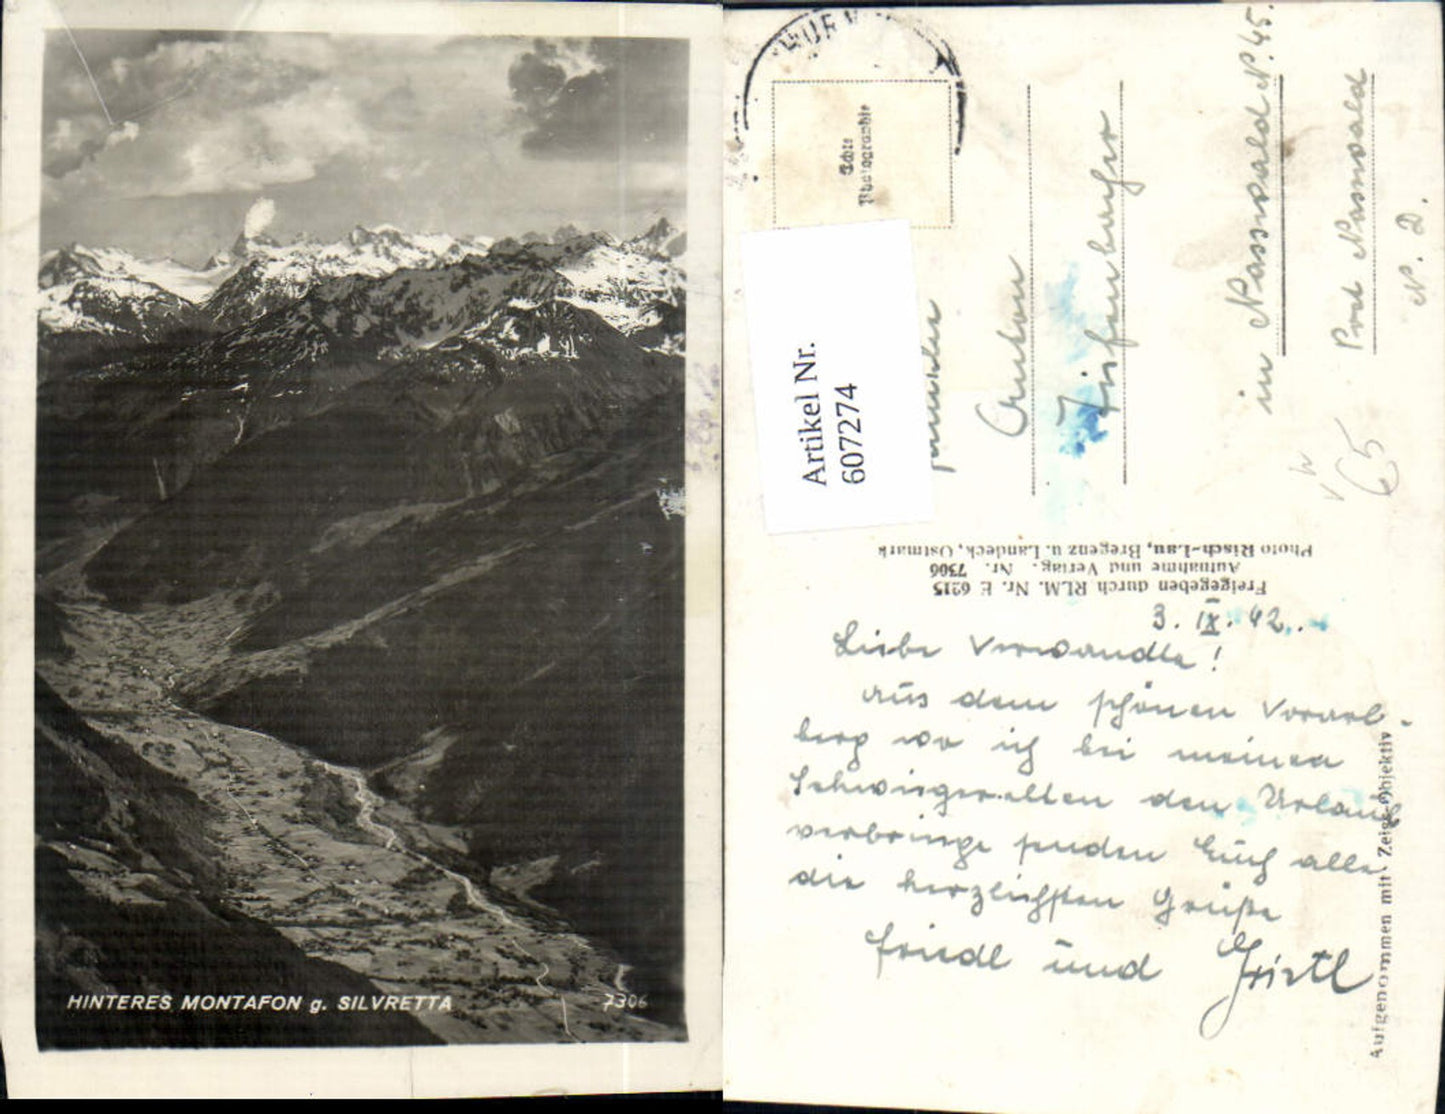 HINTERES MONTAFON g. SILVRETTA
7306
Echte
Photographie
Artikel Nr.
607274
Anton
in Nasswald N. 45.
Post Nasswald
N. D.
65
Freigegeben durch RLM. Nr. E 6215
Aufnahme und Verlag. Nr. 7306
Photo Risch-Lau, Bregenz u. Landeck, Ostmark
3. IX. 42.
Liebe Verwandte!
Aus dem schönen Vorarl-
berg wo ich bei meinen
Schwiegereltern den Urlaub
verbringe senden Euch alle
die herzlichsten Grüße
Friedl und Gristl
Aufgenommen mit Zeiss-Objektiv